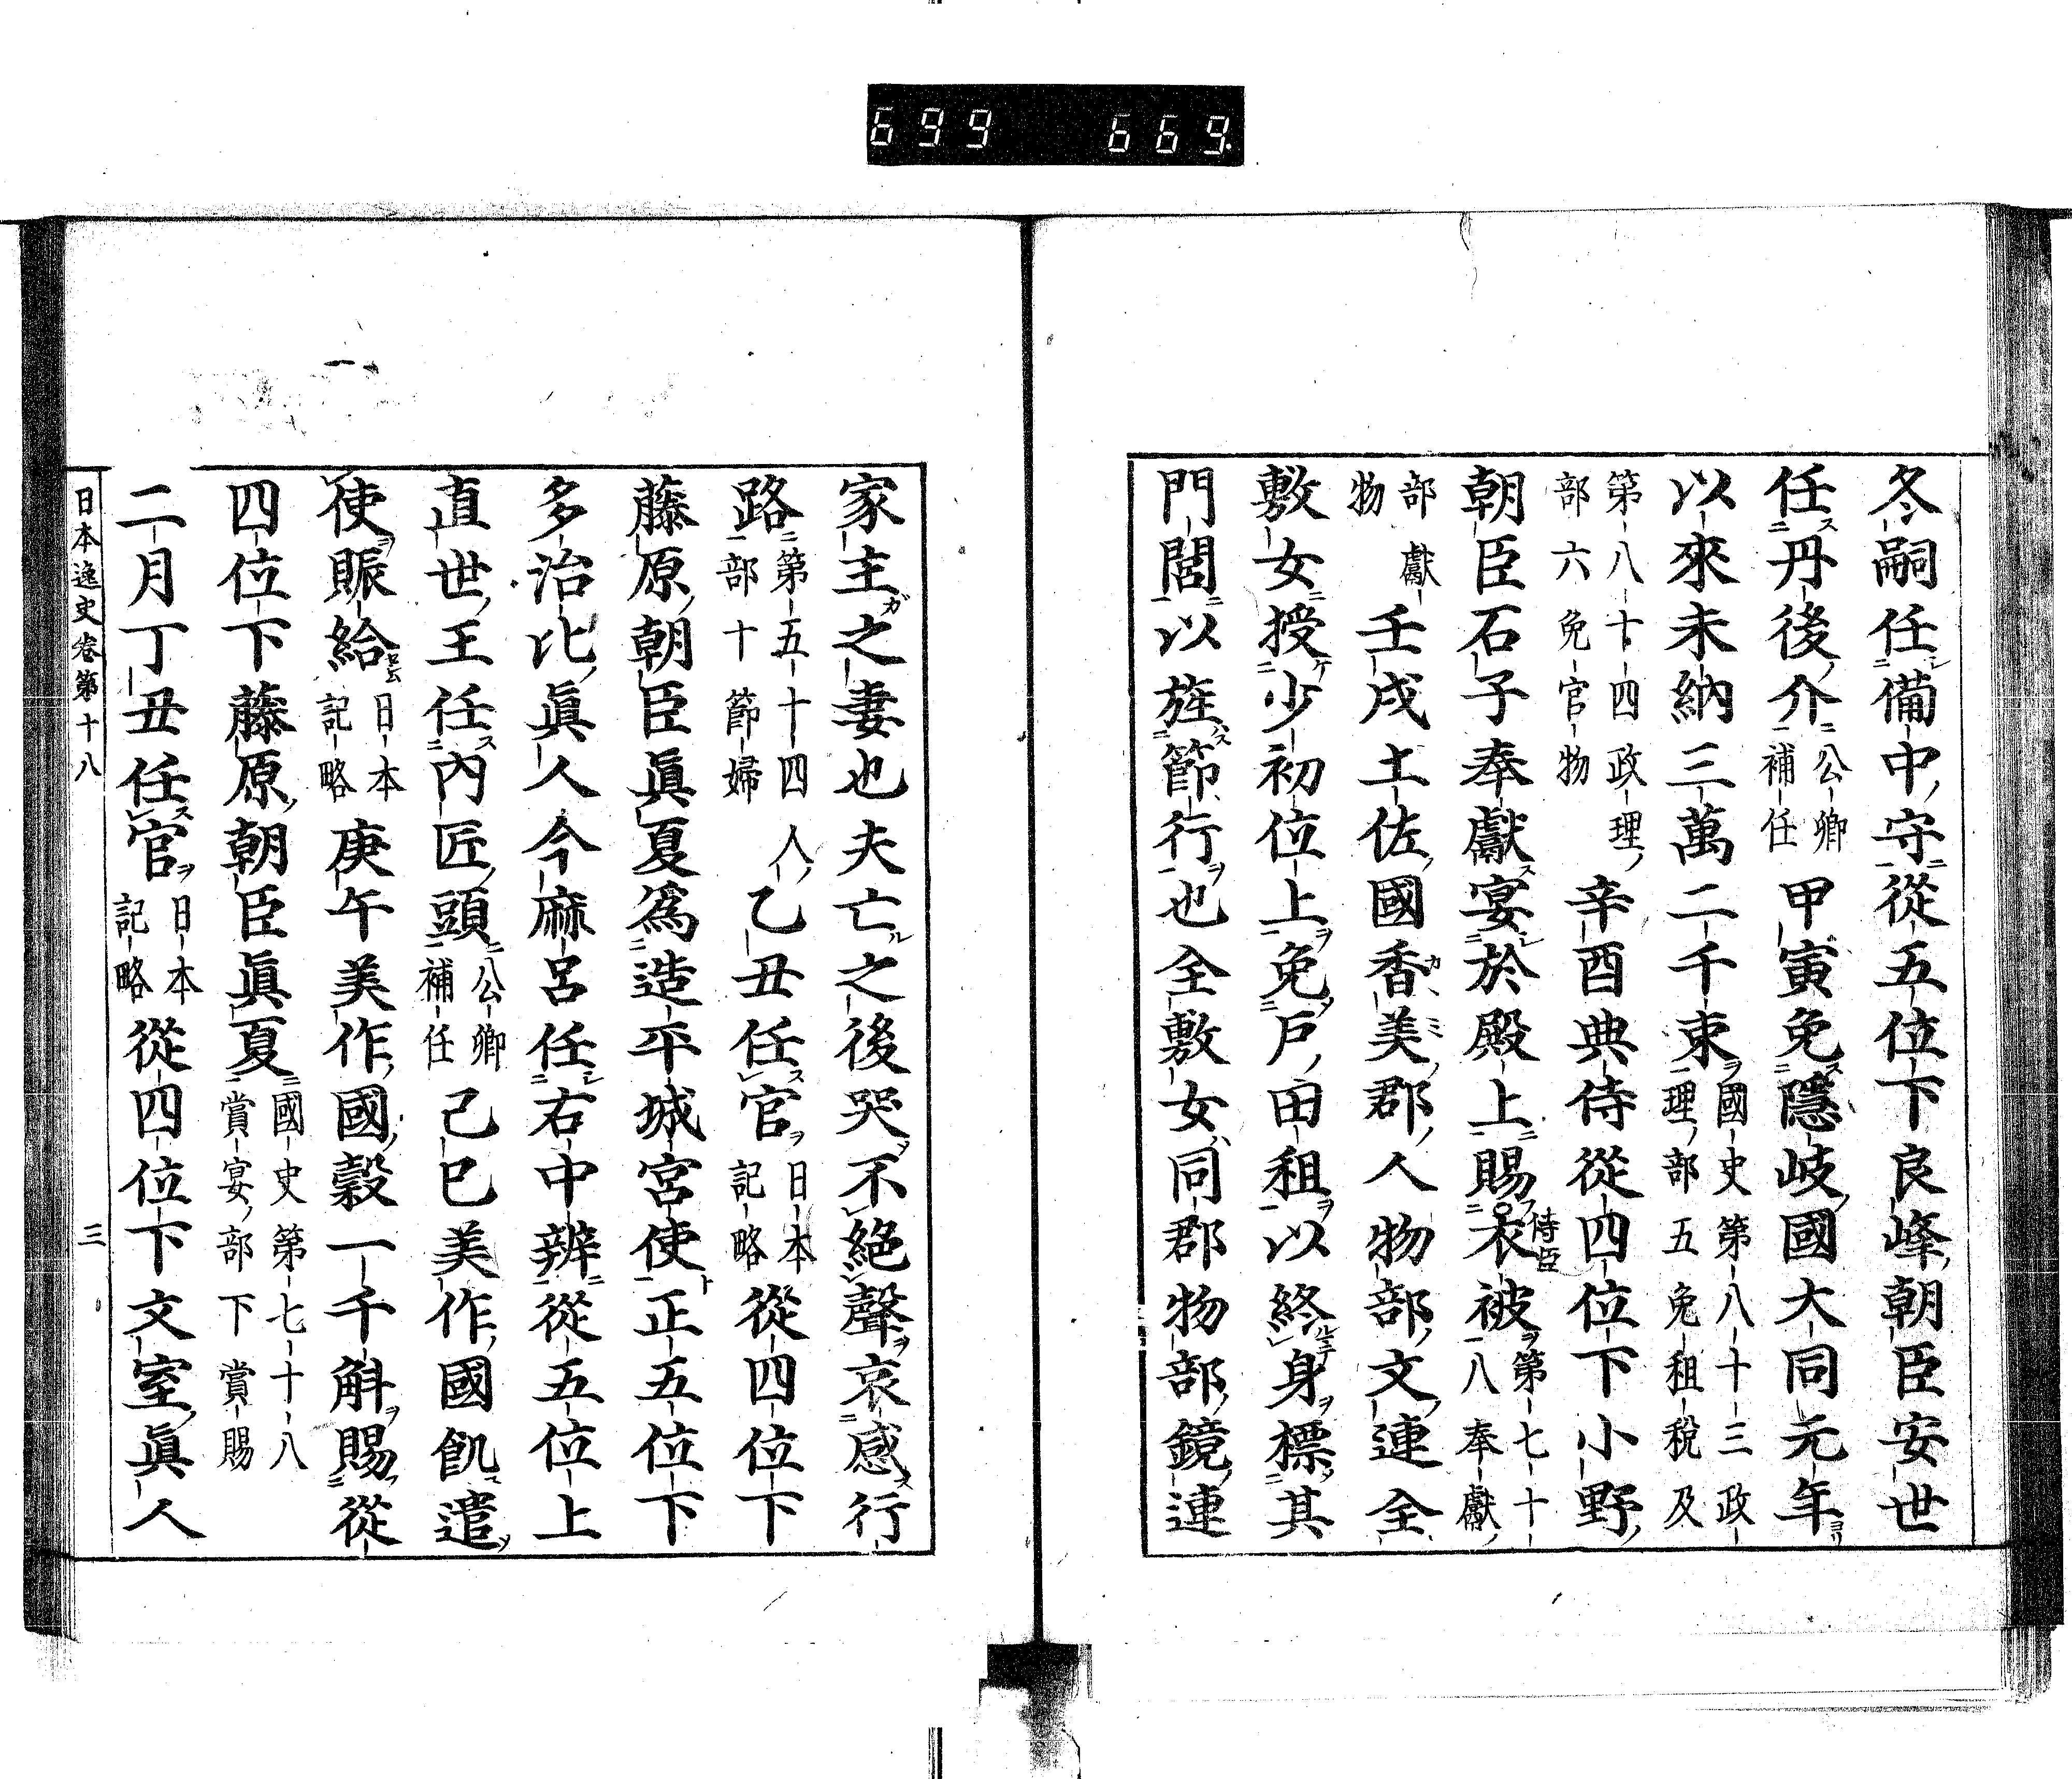 699 669
冬嗣任備中守從五位下良峰朝臣安世
任丹後介公卿補任甲寅免隱岐國大同元年
以來未納三萬二千束國史第八十三政理部五免租稅及
第八十四政理部六免官物辛酉典侍從四位下小野
朝臣石子奉獻宴於殿上賜侍臣衣被第七十八奉獻
部獻物壬戌土佐國香美郡人物部文連全
敷女授少初位上免戶田租以終身標其
門閭以旌節行也全敷女同郡物部鏡連
家主之妻也夫亡之後哭不絕聲哀感行
路第五十四人部十節婦乙丑任官日本記略從四位下
藤原朝臣眞夏爲造平城宮使正五位下
多治比眞人今麻呂任右中辨從五位上
直世王任內匠頭公卿補任己巳美作國飢遣
使賑給日本記略庚午美作國穀一千斛賜從
四位下藤原朝臣眞夏國史第七十八賞宴部下賞賜
二月丁丑任官日本記略從四位下文室眞人
日本逸史卷第十八 三